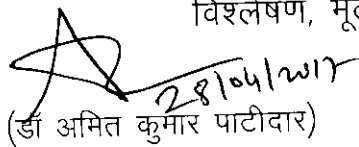 विश्लेषण,
28/04/2017
(डॉ अमित कुमार पाटीदार)